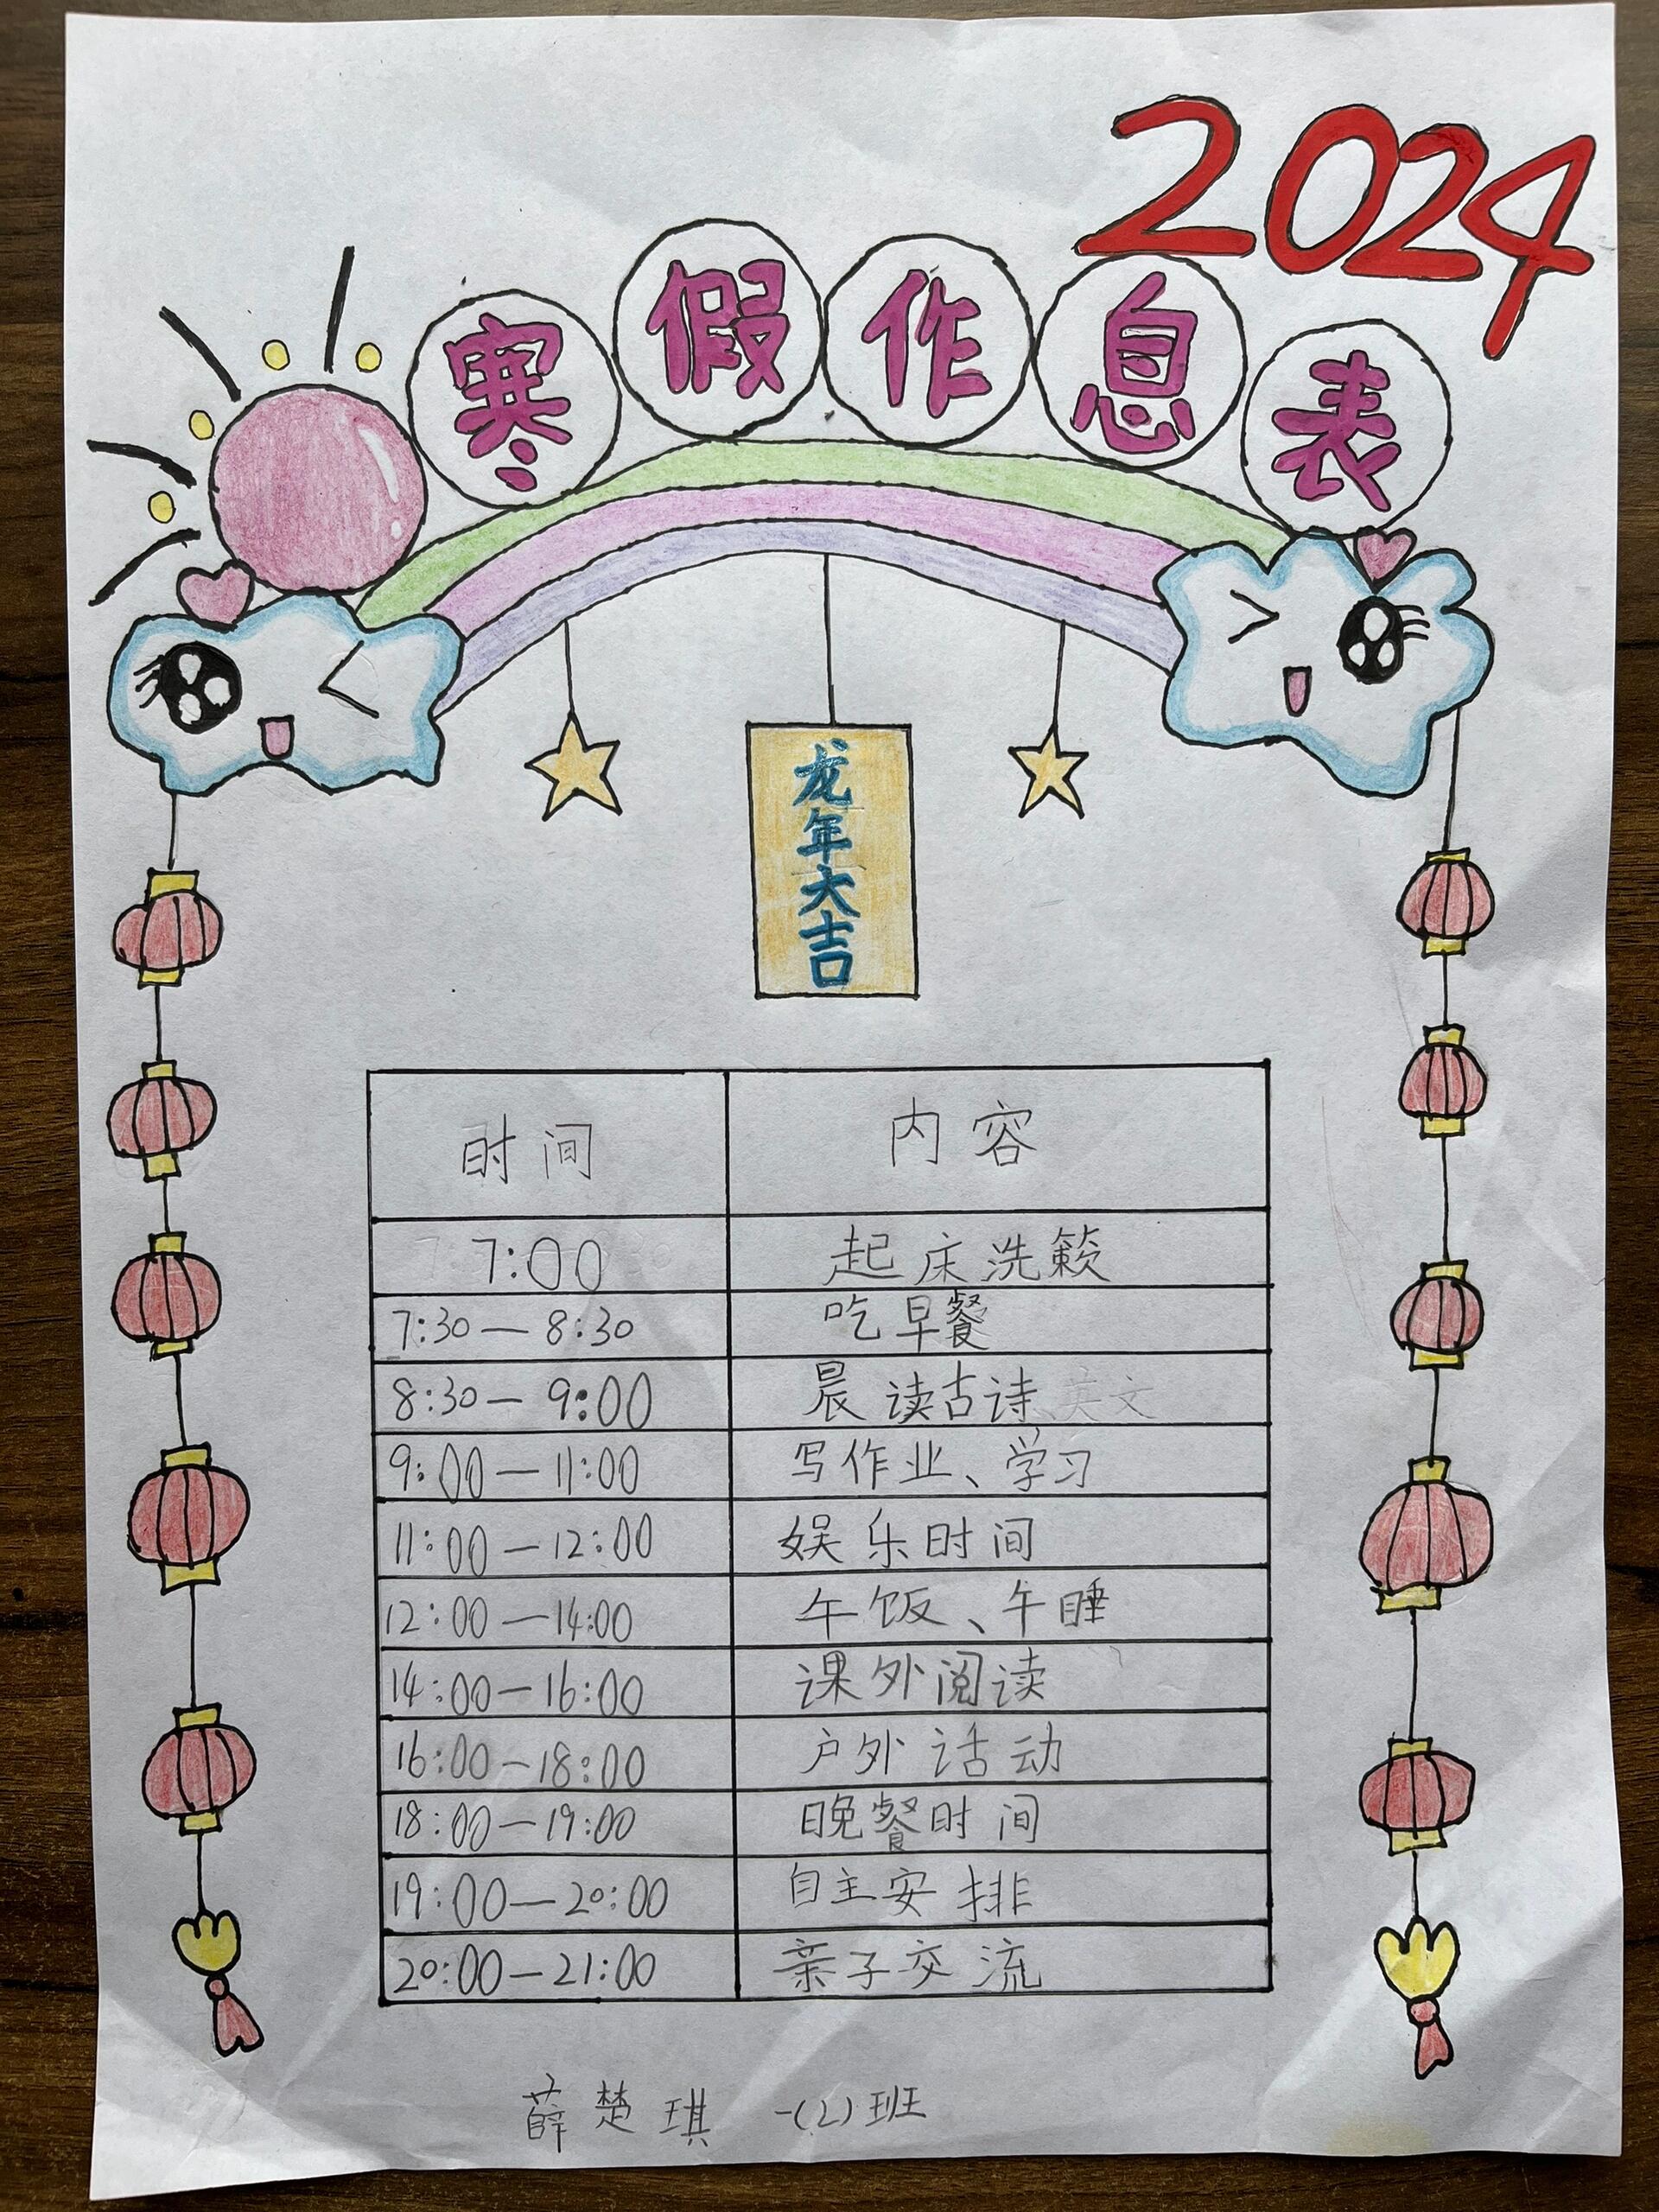 2024
寒假作息表
龙年大吉
时间 内容
7:00 起床洗簌
7:30—8:30 吃早餐
8:30—9:00 晨读古诗、英文
9:00—11:00 写作业、学习
11:00—12:00 娱乐时间
12:00—14:00 午饭、午睡
14:00—16:00 课外阅读
16:00—18:00 户外活动
18:00—19:00 晚餐时间
19:00—20:00 自主安排
20:00—21:00 亲子交流
薛楚琪 一(2)班